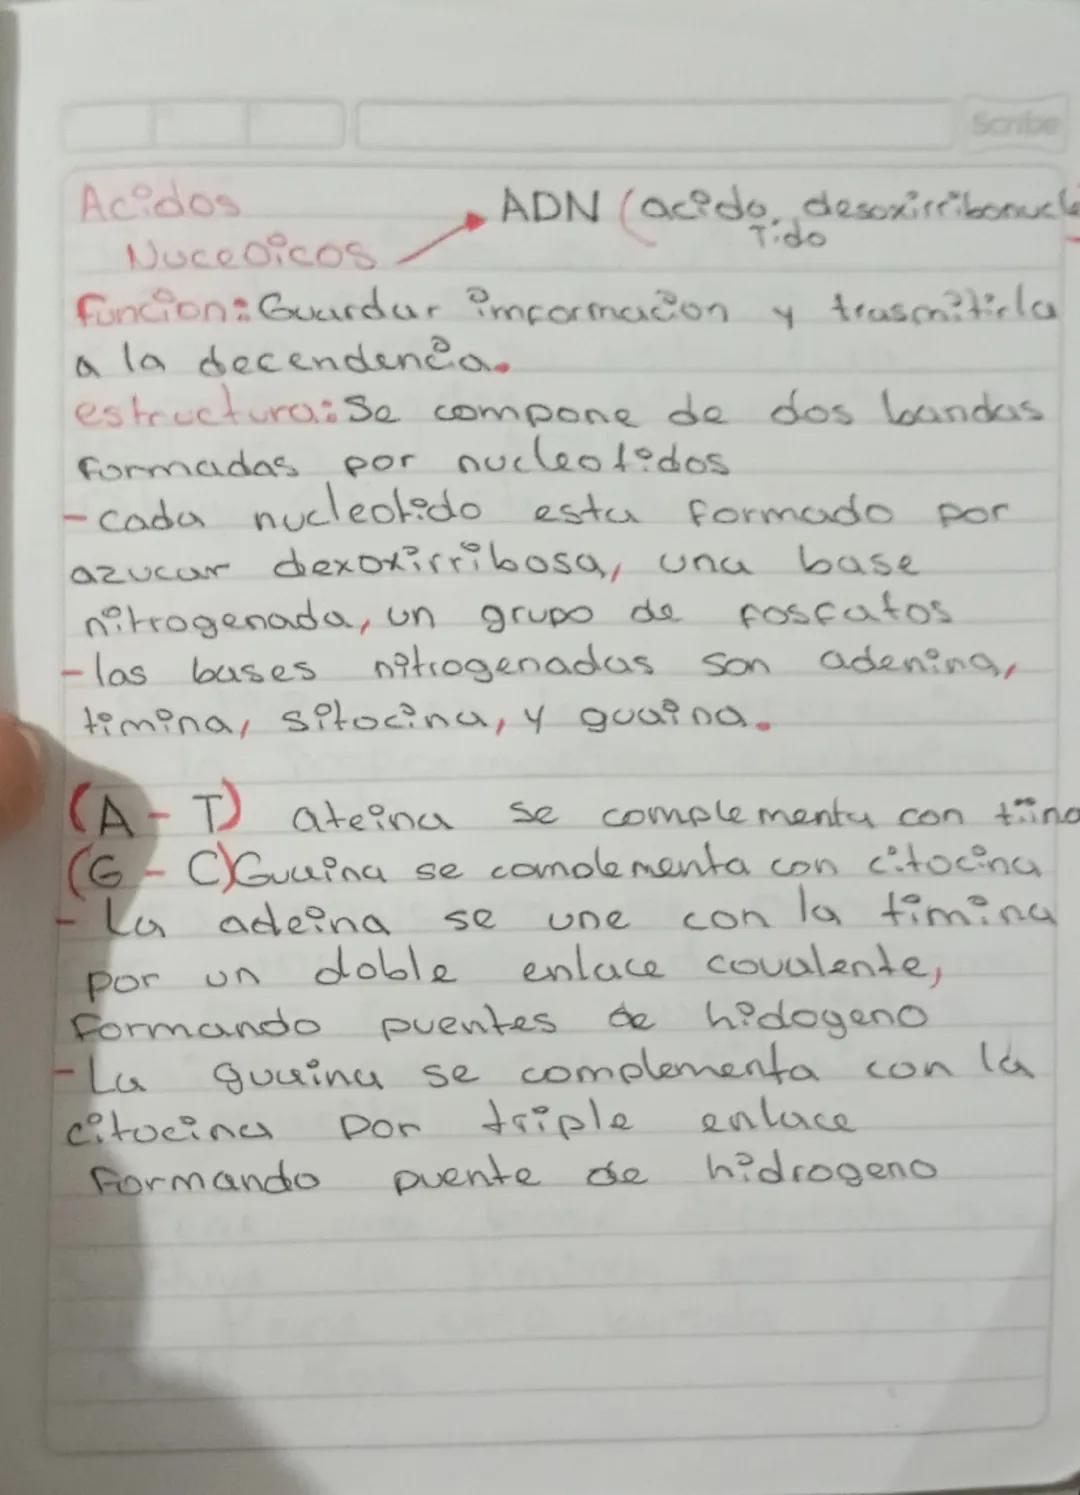 Scribe
Acidos
Nuceoicos
ADN (acido desoxirribonucle
Tido
Funcion: Guardar imformacion y trasmitirla
a la decendencia.
estructura: Se compone de dos bandas
formadas por nucleotidos
- cada nucleotido esta formado por
azucar dexoxirribosa, una base
nitrogenada, un grupo de fosfatos
- las bases nitrogenadas son adenina,
timina, sitocina, y guaina.
(A - T) ateina se complementa con tiina
(G - C) Guaina se comolementa con citocina
- La adeina se une con la timina
por un doble enlace covalente,
formando puentes de hidogeno
- La guaina se complementa con la
citocina por triple enlace
formando puente de hidrogeno